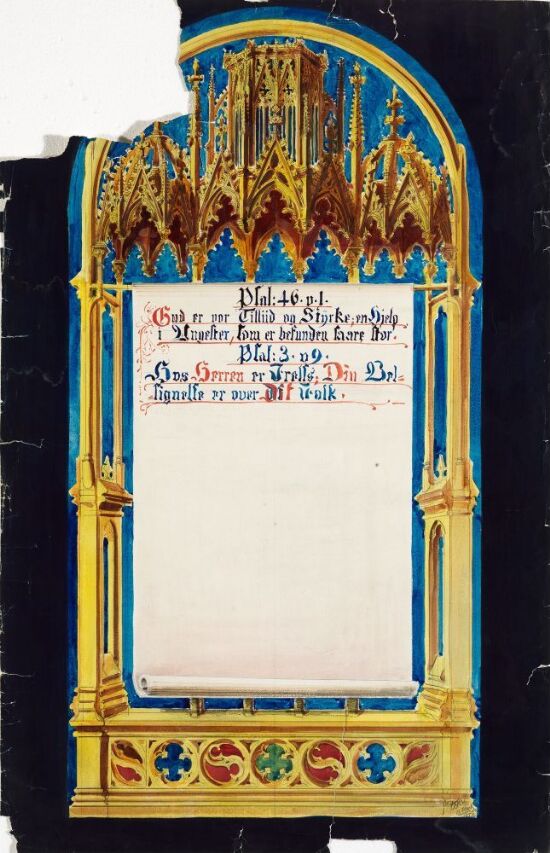 Psal: 46. v. 1.
Gud er vor Tilliid og Styrke, en Hjelp
i Angester, som er befunden saare stor.
Psal: 3. v 9.
Hos Herren er Frelse, Din Vel-
signelse er over Dit Folk.